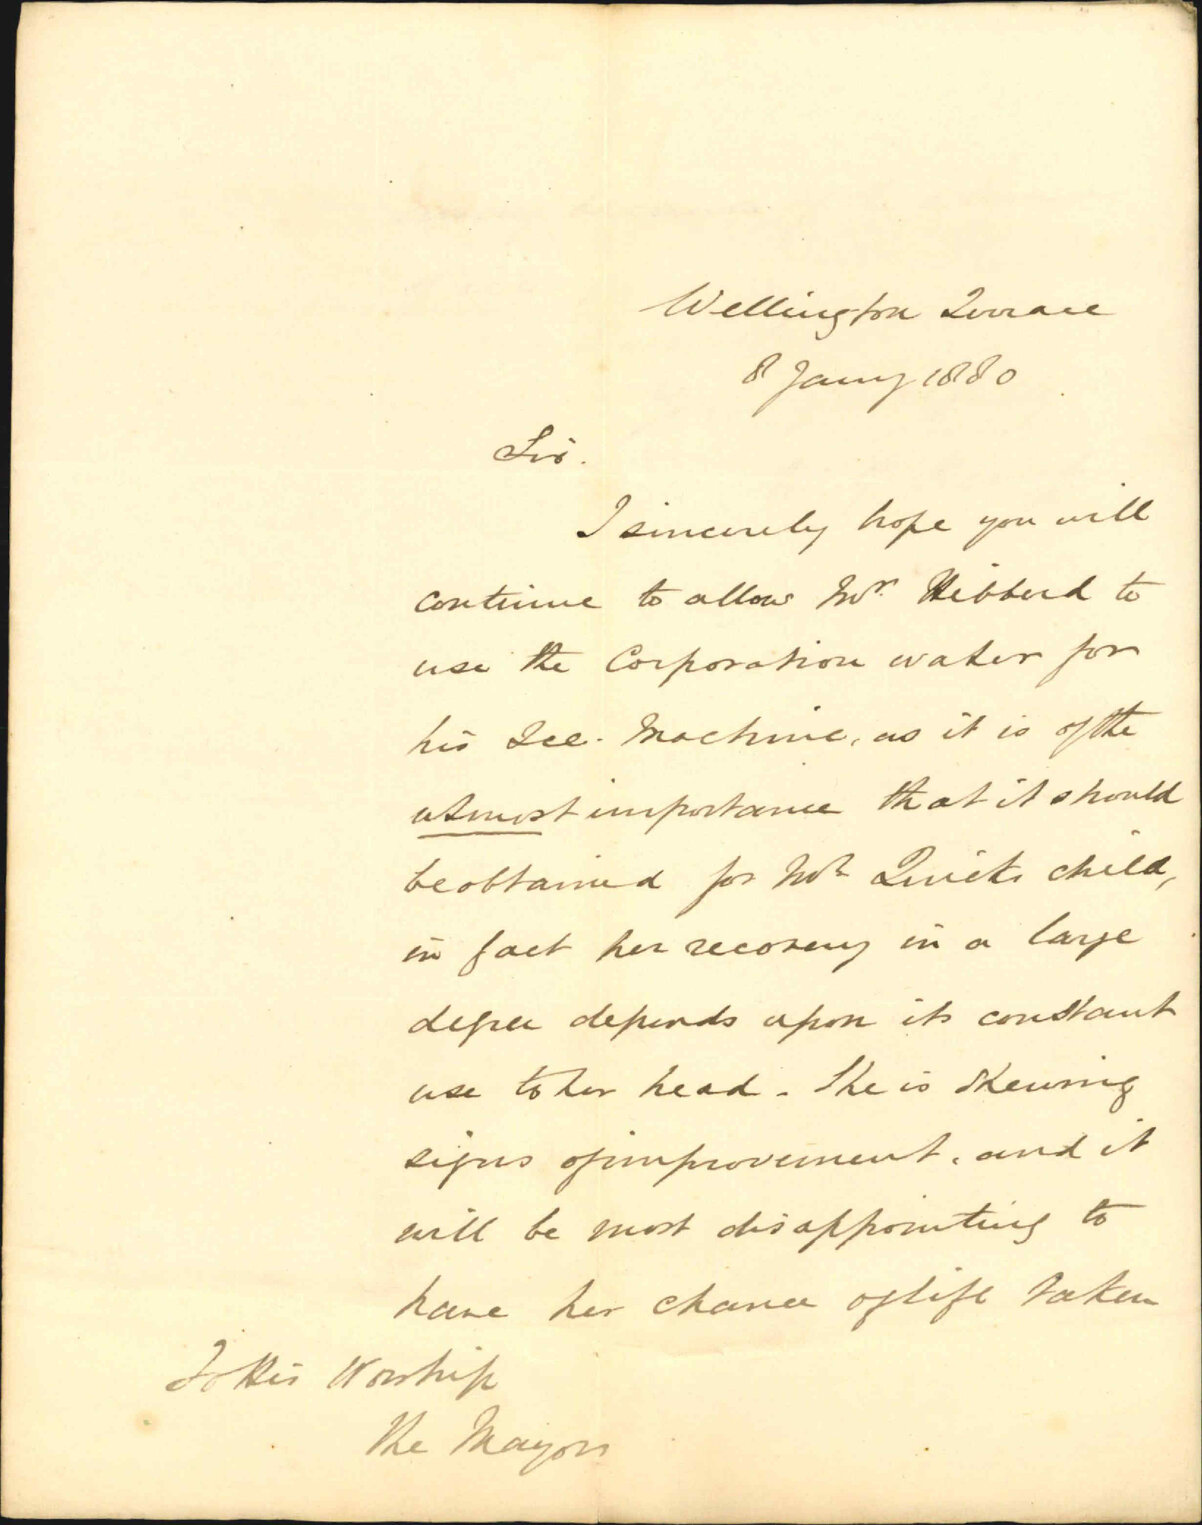 Wellington Terrace
8 Jany 1880
Sir.
I sincerely hope you will
continue to allow Mr. Hibberd to
use the Corporation water for
his Ice. Machine, as it is of the
utmost importance that it should
be obtained for Mr Quick's child,
in fact her recovery in a large
degree depends upon its constant
use to her head. She is shewing
signs of improvement, and it
will be most disappointing to
have her chance of life taken
To His Worship
The Mayor